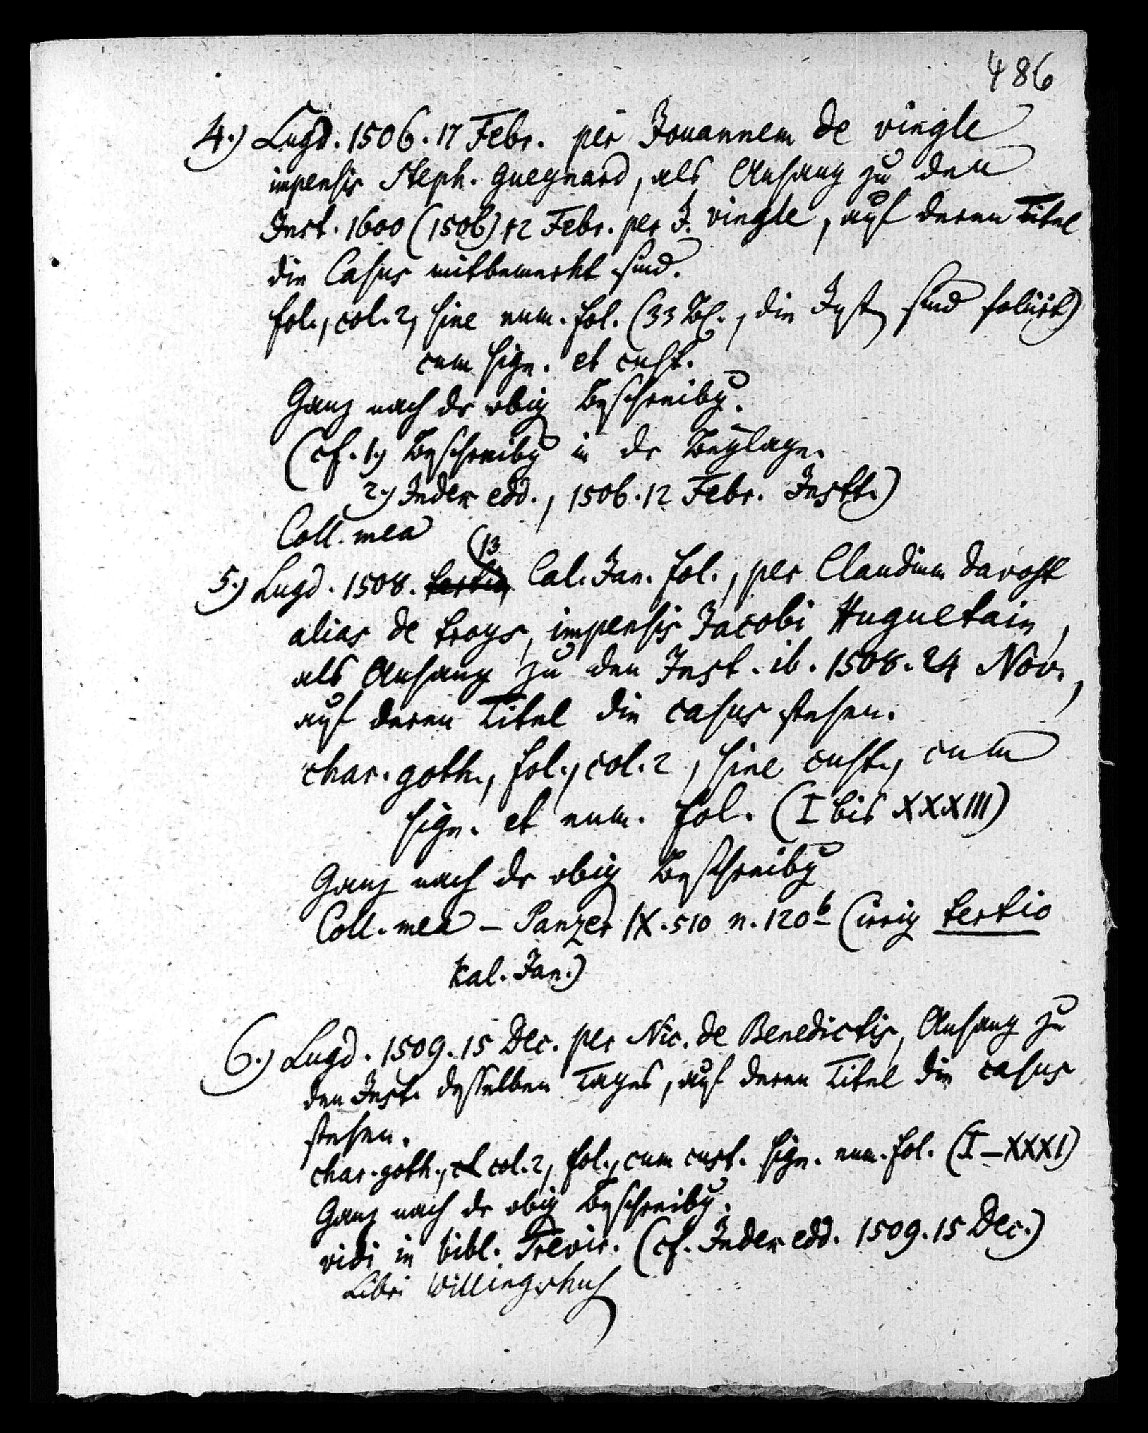 486
4.) Lugd. 1506. 17 Febr. per Jouannem de vingle
impensis Steph. Guegnard, als Anhang zu den
Inst. 1600 (1506) 12 Febr. per J. vingle, auf deren Titel
die Casus mitbemerkt sind.
fol., col. 2, sine num. fol. (33 Bl., die Inst. sind folürt)
cum sign. et cust.
Ganz nach dr obig Beschreibg.
(cf. 1.) Beschreibg in dr Beylage.
2.) Index edd., 1506. 12 Febr. Instt.)
Coll. mea
(13
5.) Lugd. 1508. tertio Cal. Jan. fol., per Claudium davost
alias de troys, impensis Jacobi Huguetain,
als Anhang zu den Inst. ib. 1508. 24 Nov.,
auf deren Titel die casus stehen.
char. goth., fol., col. 2, sine cust., cum
sign. et num. fol. (I bis XXXIII)
Ganz nach dr obig Beschreibg
Coll. mea – Panzer IX. 510 n. 120b (irrig tertio
kal. Jan.)
6.) Lugd. 1509. 15 Dec. per Nic. de Benedictis, Anhang zu
den Inst. desselben Tages, auf deren Titel die casus
stehen.
char. goth., col. 2, fol., cum cust. sign. num. fol. (I–XXXI)
Ganz nach dr obig Beschreibg.
vidi in bibl. Trevir. (cf. Index edd. 1509. 15 Dec.)
Libri